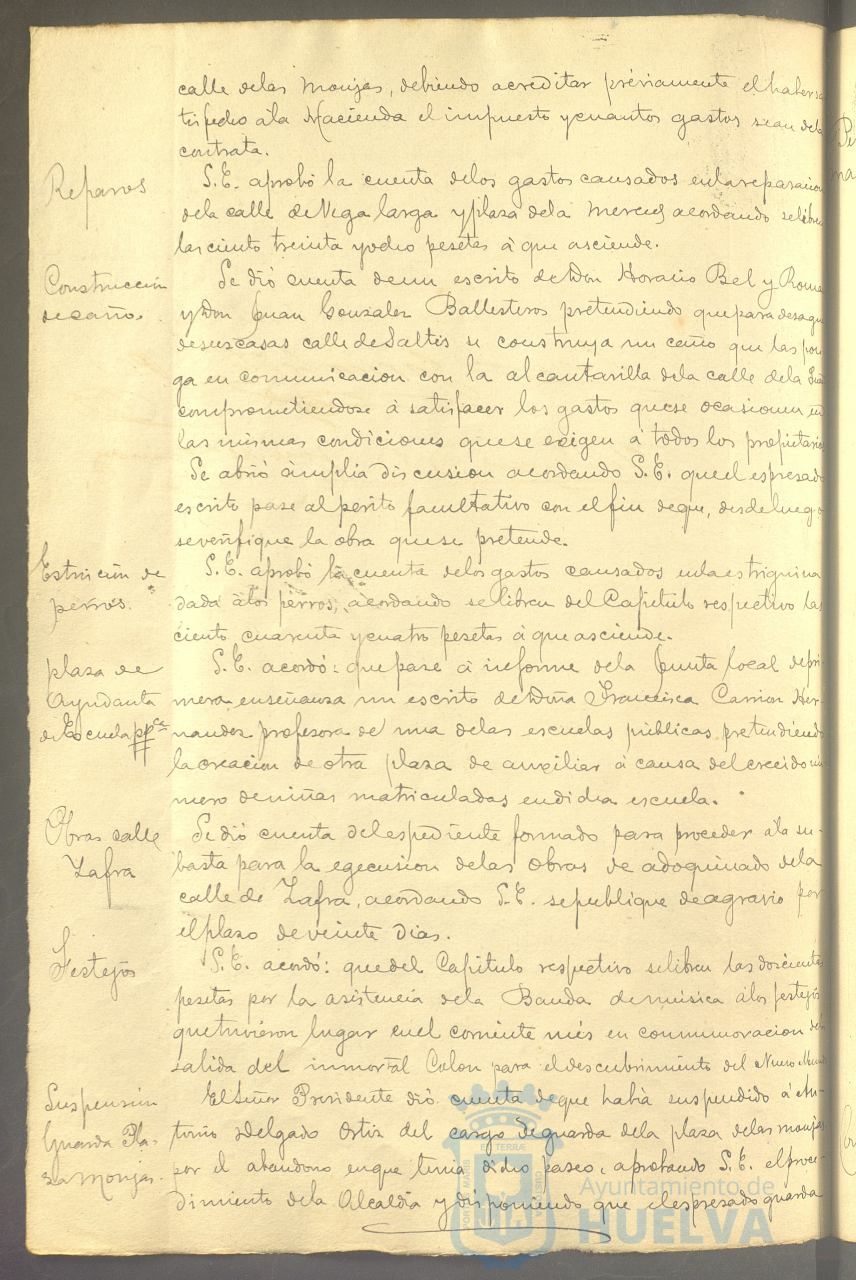 calle delas Monjas, debiendo acreditar préviamente el haber sa
tisfecho ála Hacienda el impuesto y cuantos gastos sean dela
contrata.
Reparos
S.E. aprobó la cuenta delos gastos causados enla reparacion
dela calle de Vega larga y plaza dela Merced acordando se libren
las ciento treinta y ocho pesetas á que asciende.
Construcción
de caños.
Se dió cuenta deun escrito de Don Horacio Bel y Roma
y Don Juan Gonzalez Ballesteros pretendiendo que para desague
desus casas calle de Saltés se construya un caño que las pon
ga en comunicacion con la alcantarilla dela calle dela
comprometiendose á satisfacer los gastos quese ocasionen en
las mismas condiciones quese exigen á todos los propietarios
Se abrió ámplia discusion acordando S.E. queel espresado
escrito pase al perito facultativo con elfin deque, desde luego
severifique la obra quese pretende.
Estricnina de
perros.
S.E. aprobó la cuenta delos gastos causados enla estriquinina
dada álos perros, acordando se libren del Capitulo respectivo las
ciento cuarenta y cuatro pesetas á que asciende.
plaza de
Ayudanta
de Escuela ppca
S.E. acordó: que pase á informe dela Junta local de pri
mera enseñanza un escrito de Doña Francisca Carrion Her
nandez profesora de una delas escuelas públicas pretendiendo
la creacion de otra plaza de auxiliar á causa del crecido nú
mero de niñas matriculadas en dicha escuela.
Obras calle
Zafra
Se dió cuenta del espediente formado para proceder ála su-
basta para la egecusion delas obras de adoquinado dela
calle de Zafra, acordando S.E. se publique de agravio por
el plazo de veinte dias.
Festejos
S.E. acordó: que del Capitulo respectivo se libren las doscientas
pesetas por la asistencia dela Banda de música álos festejos
que tuvieron lugar enel corriente més en conmemoracion dela
salida del inmortal Colon para el descubrimiento del Nuevo Mundo
Suspensión
Guarda Pla-
za Monjas.
El Señor Presidente dió cuenta de que había suspendido á An-
tonio Delgado Ortiz del cargo de guarda dela plaza delas monjas
por el abandono en que tenia dicho paseo, aprobando S.E. el proce-
dimiento dela Alcaldía y disponiendo que el espresado guarda
Ayuntamiento de
HUELVA